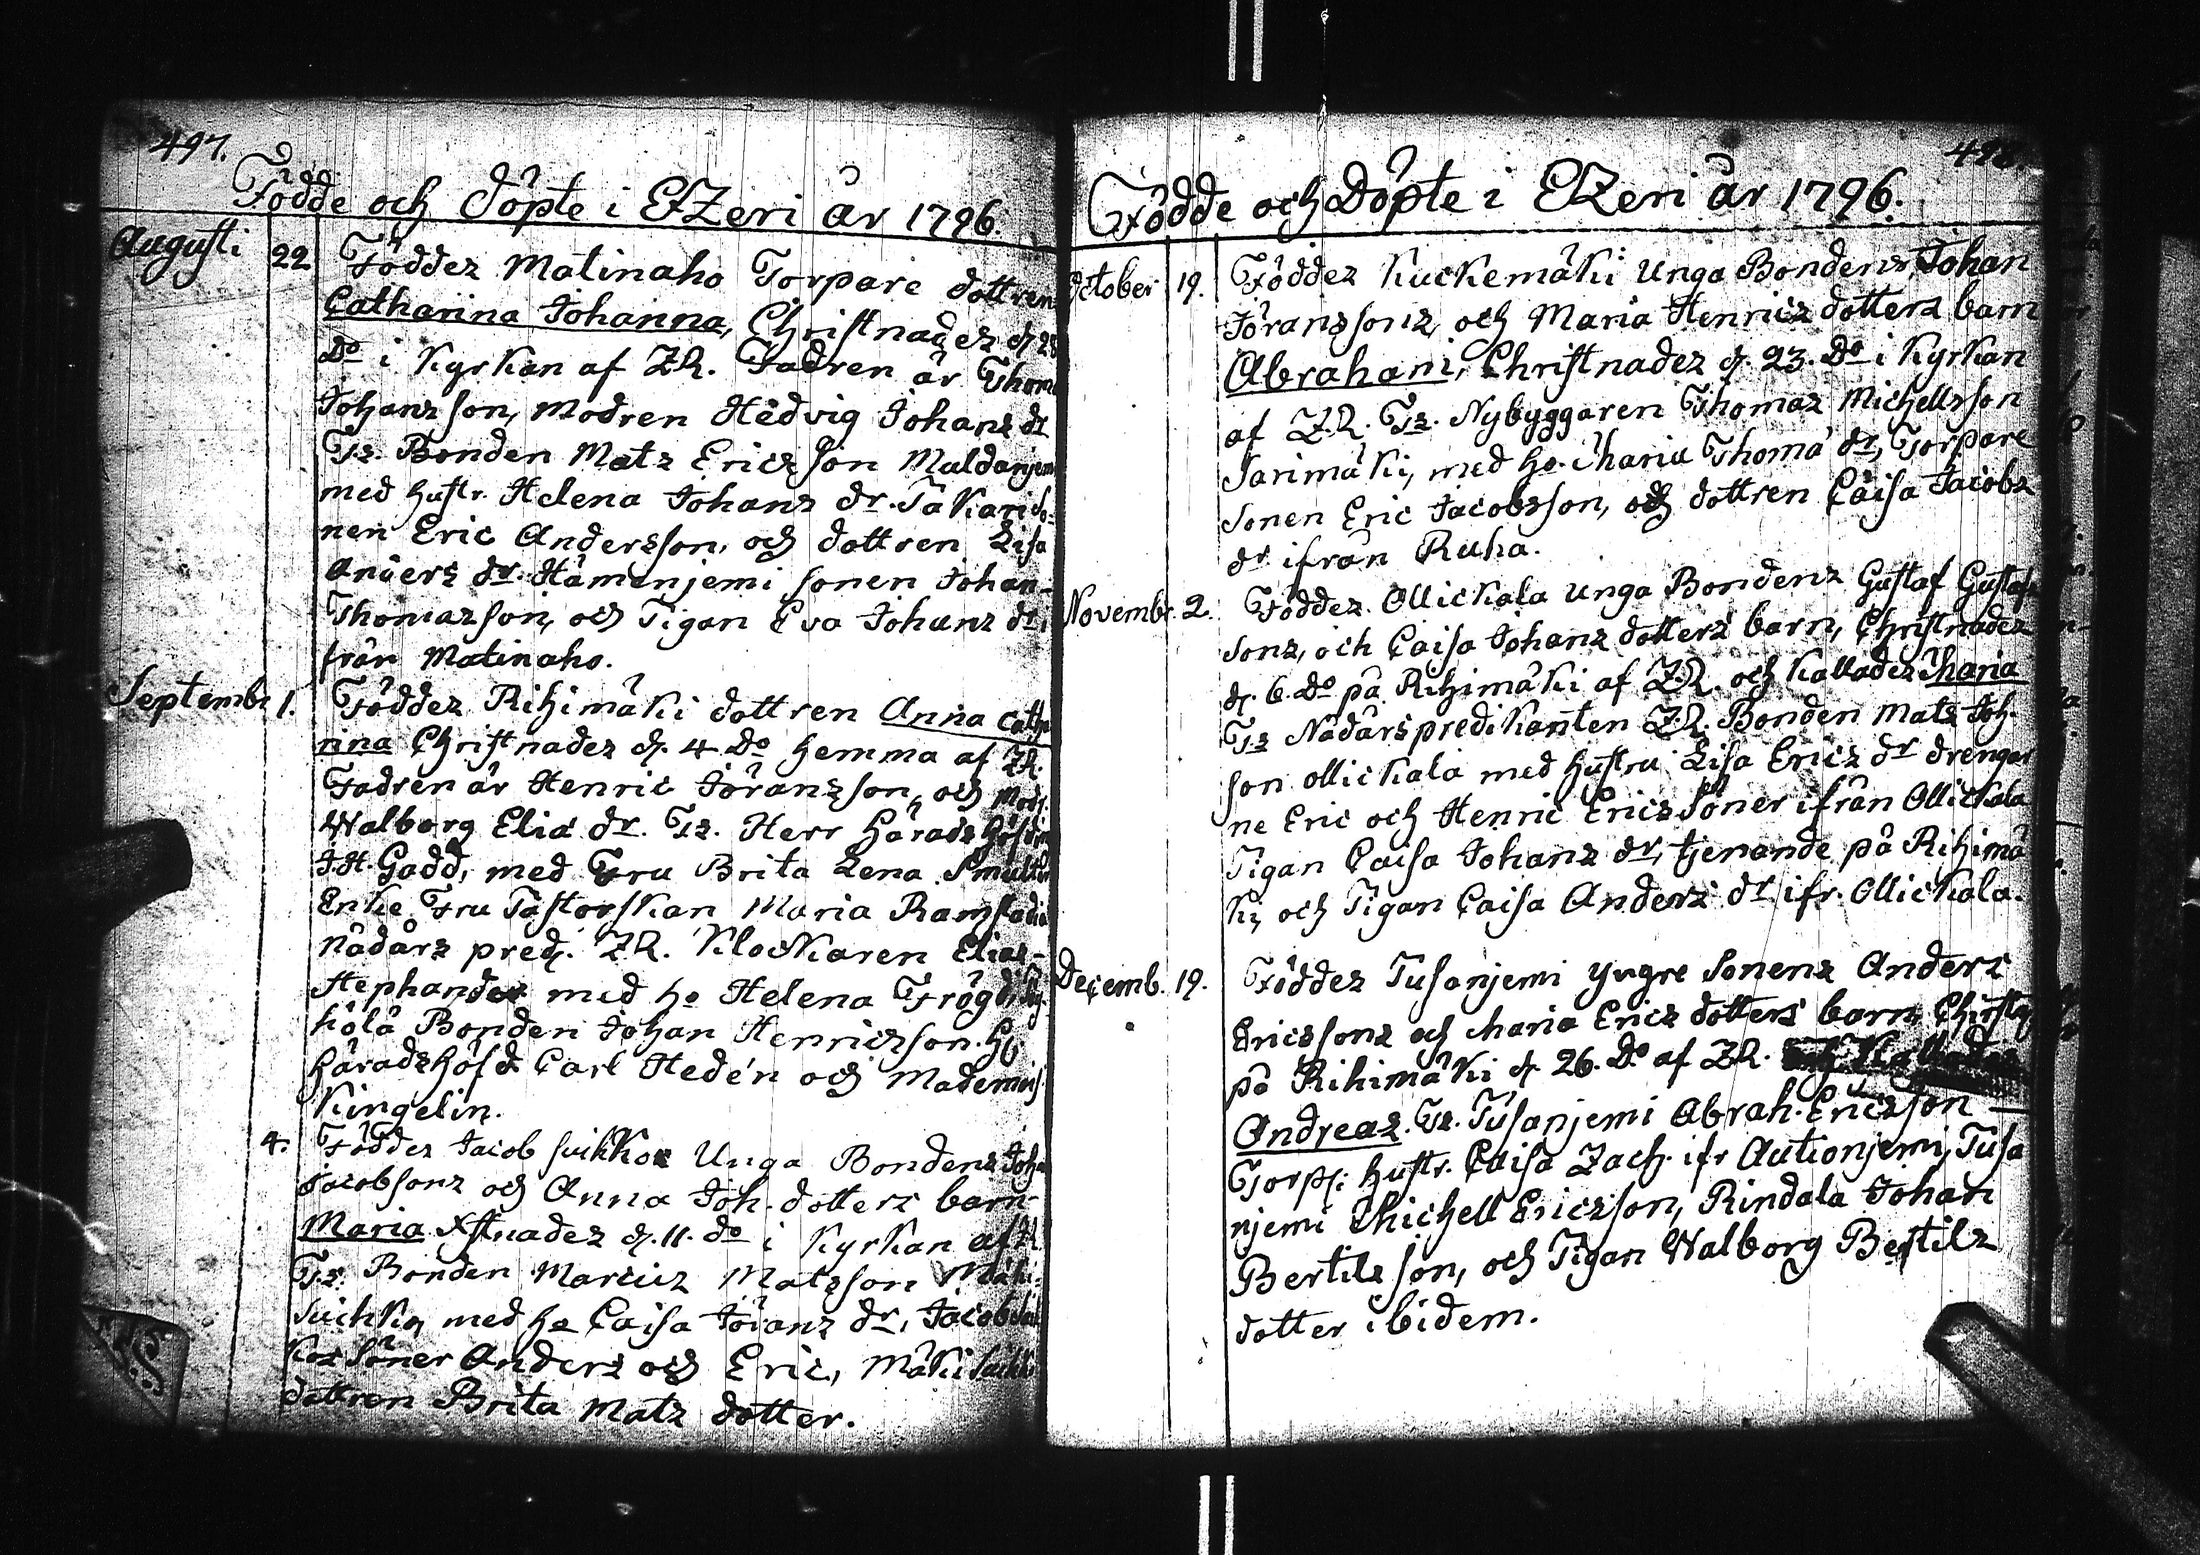 497.
Födde och döpte i EZeri år 1796.
Augusti 22 Föddes Matinaho Torpare dottren
Catharina Johanna, Christnades d. 28
Do i Kyrkan af ZR. Fadren är Thom
Johansson, modren Hedvig Johans dr
Ts. Bonden Mats Ericsson Muldanjem
med hustr. Helena Johans dr. Täkari so-
nen Eric Andersson, och dottren Lisa
Anders dr. Hämenjemi sonen Johan
Thomasson, och Pigan Eva Johans dr i
från Matinaho.
Septembr 1. Föddes Rihimäki dottren Anna Catha
rina Christnades d. 4 Do hemma af ZR.
Fadren är Henric Göransson, och Modr.
Walborg Eliæ dr. Ts. Herr Härads Höfdin
J.H. Gadd, med Fru Brita Lena
Enke Fru Pastorskan Maria
Nådårs pred. ZR. Klockaren Elias
Stephander med ho Helena
hölä Bonden Johan Henricsson. H
häradshöfd. Carl Hedén och Madem
Kingelin.
4. Föddes Jacob Suikkos Unga Bondens Joha
Jacobsons och Anna Joh. dotters barn
Maria Xstnades d. 11. do i Kyrkan af ZR
Ts. Bonden Marcus Matsson Mäki-
Suickko, med ho Caisa Görans dr, Jacob Suik
kos Söner Anders och Eric, Mäki Suikko
dottren Brita Mats dotter.
498.
Födde och Döpte i EZeri år 1796.
October 19. Föddes Kuckemäki Unga Bondens Johan
Göranssons, och Maria Henrics dotters barn
Abraham, Christnades d. 23. Do i Kyrkan
af ZR. Ts. Nybyggaren Thomas Michellsson
Sarimäki, med ho. Maria Thomæ dr, Torpare
Sonen Eric Jacobsson, och dottren Caisa Jacobs
dr ifrån Ruha.
Novembr. 2. Föddes Ollickala Unga Bondens Gustaf Gustaf
sons, och Caisa Johans dotters barn, Christnades
d. 6. Do på Rihimäki af ZR. och kallades Maria
Ts Nådårspredikanten ZR. Bonden Mats Joh.
son Ollickala med hustru Lisa Erics dr drengar
ne Eric och Henric Erics Söner ifrån Ollickala
Pigan Caisa Johans dr, tjenande på Rihimä
ki, och Pigan Caisa Anders dr ifr. Ollickala.
Decemb. 19. Föddes Tusanjemi yngre Sonens Anders
Ericssons och Maria Erics dotters barn, Christn
på Rihimäki d. 26. Do af ZR.
Andreas. Ts. Tusanjemi Abrah. Ericsson —
Torp. hustr. Caisa Zach. ifr Autionjemi, Tusa
njemi Michell Ericsson, Rindala Johan
Bertilsson, och Pigan Walborg Bertils
dotter ibidem.